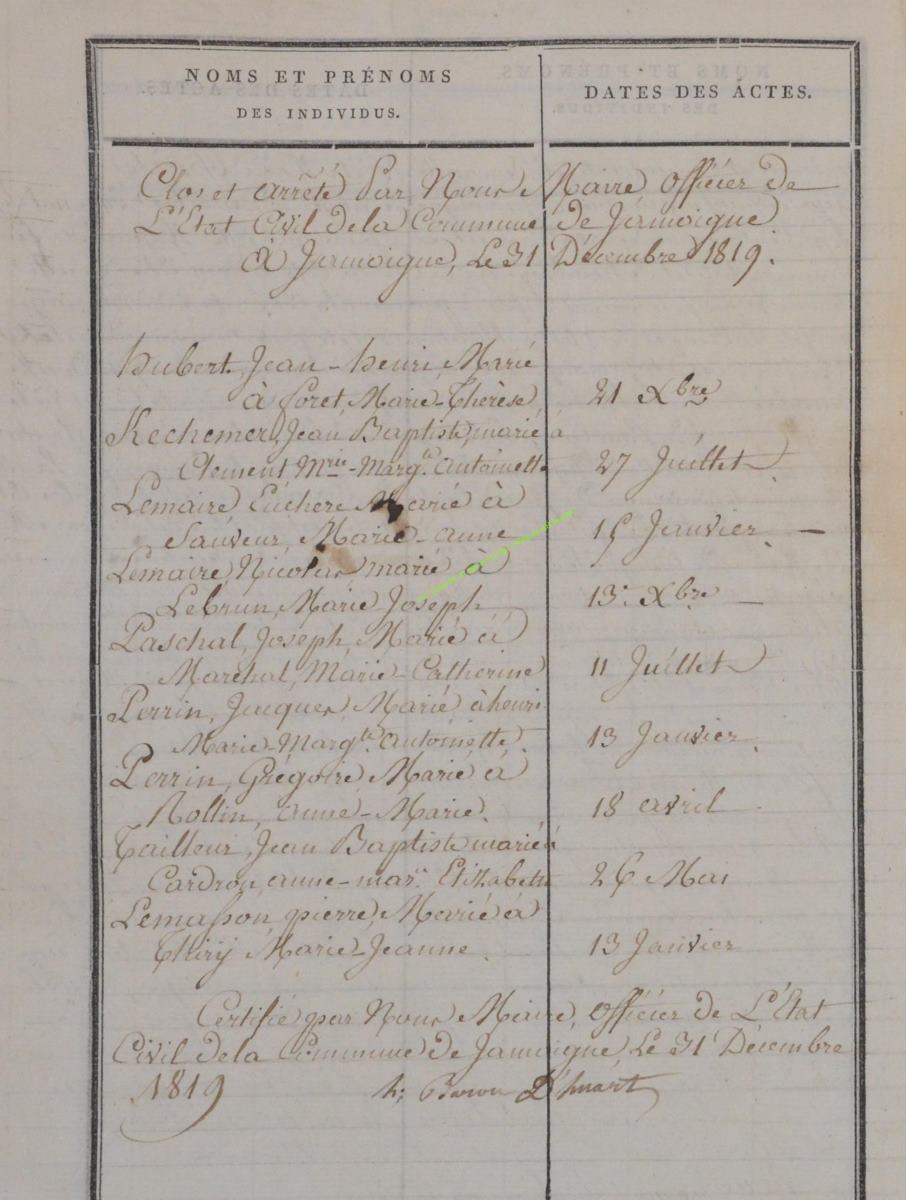 NOMS ET PRÉNOMS
DES INDIVIDUS.
DATES DES ACTES.
Clos et arrêté Par Nous Maire officier de
L'Etat Civil dela Commune de Jamoigne
à Jamoigne, Le 31 Décembre 1819.
hubert, Jean-henri, Marié
à foret, Marie-Thérèse 21 Xbre
Kechemer, Jean Baptiste, marié à
Clement Mrie-Margte antoinette 27 Juillet
Lemaire Euchere Marié à
Sauveur Marie-anne 15 Janvier
Lemaire, Nicolas, marié à
Lebrun, Marie Joseph 13 Xbre
Paschal, Joseph, Marié à
Marèchal, Marie-Catherine 11 Juillet
Perrin, Jacques, Marié à henri
Marie-Margte antoinette. 13 Janvier.
Perrin, Grégoire, Marié à
Rollin, anne-Marie. 18 avril
Tailleur, Jean Baptiste marié à
Cardron, anne-marie Elizabeth 26 Mai
Lemasson, pierre, Marié à
Thirÿ Marie-Jeanne. 13 Janvier
Certifié par Nous Maire, officier de L'Etat
Civil dela Commune de Jamoigne, Le 31 Décembre
1819 h; Baron D'huart